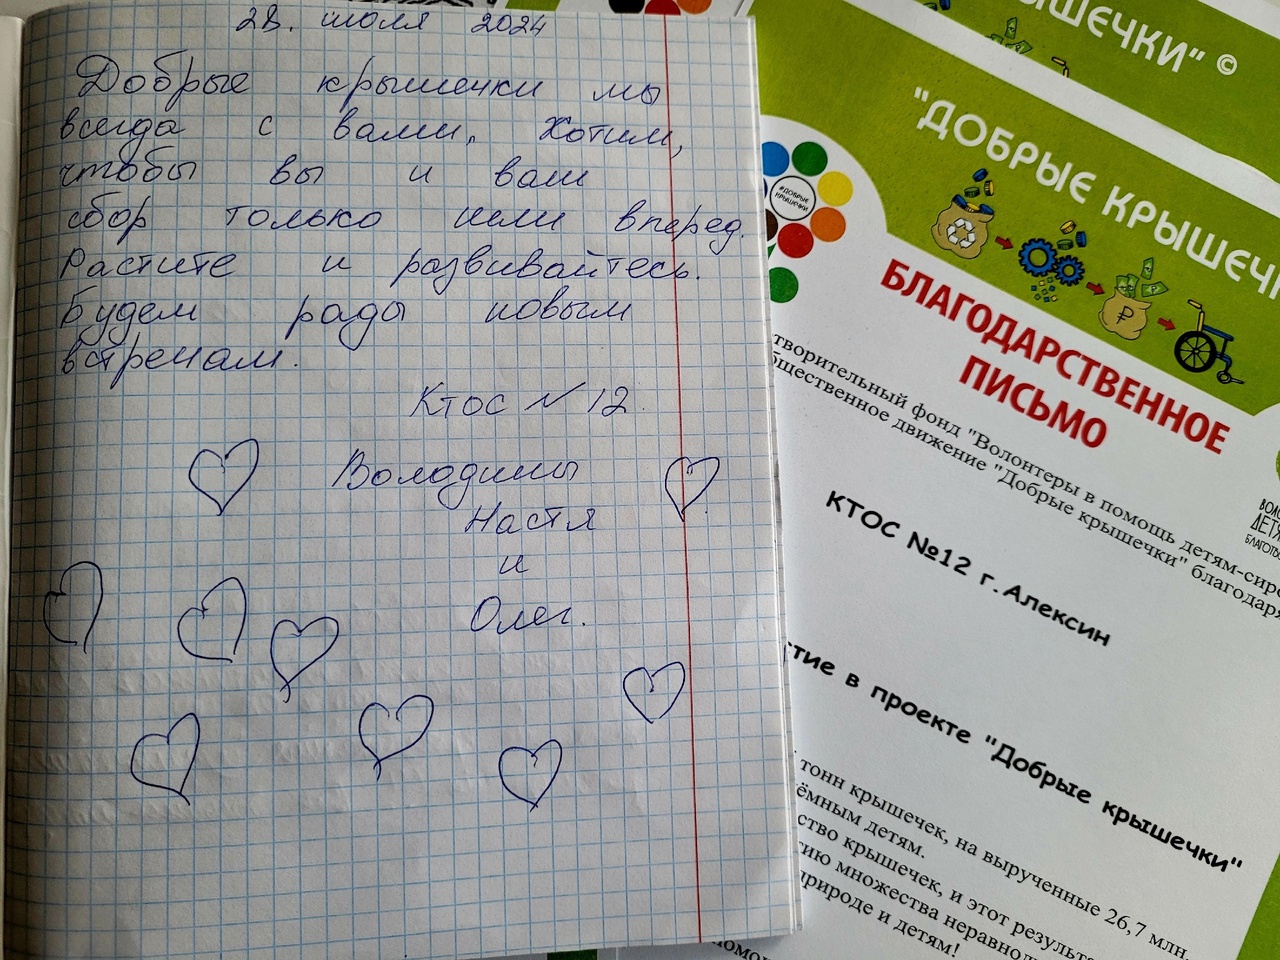 28. июля 2024
Добрые крышечки мы
всегда с вами. Хотим,
чтобы вы и ваш
сбор только шли вперед.
Растите и развивайтесь.
Будем рады новым
встречам.
Ктос №12
Володины
Настя
и
Олег.
РЫШЕЧКИ" ©
"ДОБРЫЕ КРЫШЕЧК
#ДОБРЫЕ
КРЫШЕЧКИ
БЛАГОДАРСТВЕННОЕ
ПИСЬМО
творительный фонд "Волонтеры в помощь детям-сиро
бщественное движение "Добрые крышечки" благодаря
ВОЛО
ДЕТЯ
БЛАГОТВ
КТОС №12 г.Алексин
стие в проекте "Добрые крышечки"
тонн крышечек, на вырученные 26,7 млн.
ёмным детям.
ство крышечек, и этот результа
гию множества неравнод
природе и детям!
помо